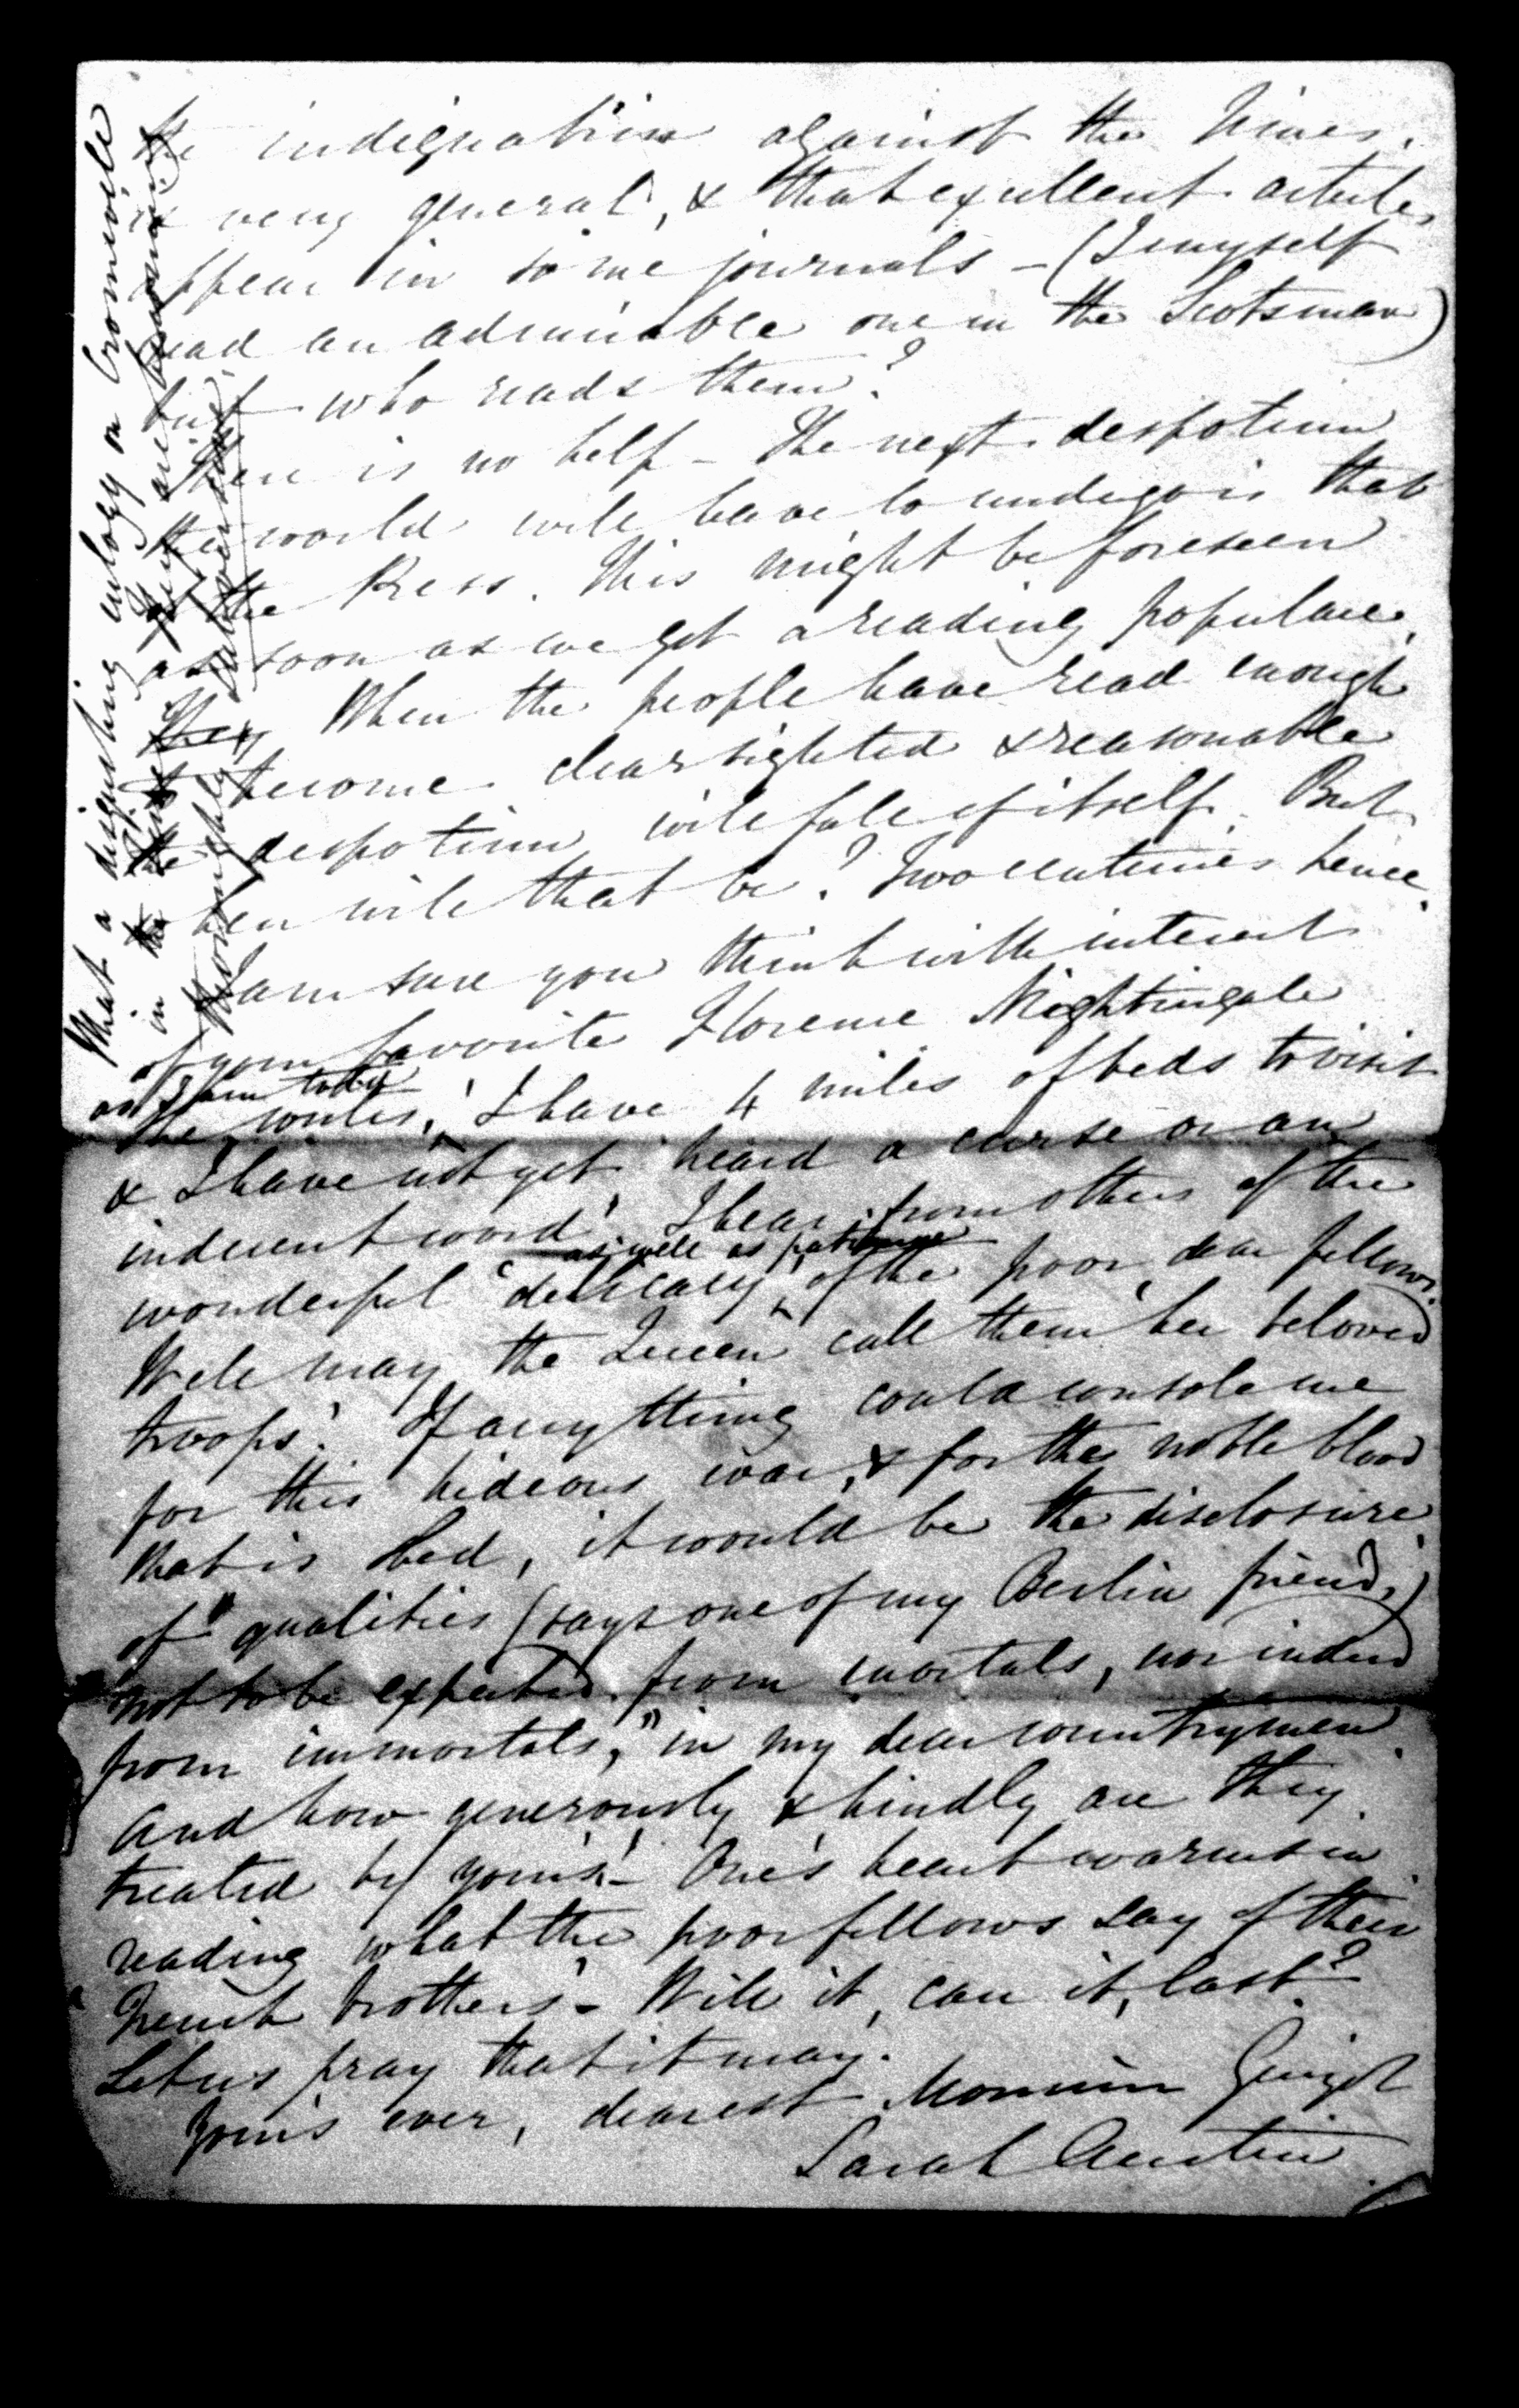 the indignation against the Times.
is very general, & that excellent articles
appear in some journals – (I myself
read an admirable one in the Scotsman)
but who reads them?
There is no help – The next despotism
the world will have to undergo is that
of the Press. This might be foreseen
as soon as we got a reading populace.
They When the people have read enough
to become clearsighted & reasonable
the despotism will fall of itself. But
when will that be? Two centuries hence.
I am sure you think with interest
of your favorite Florence Nightingale
as I am told
She writes, 'I have 4 miles of beds to visit
& I have not yet heard a curse or an
indecent word'. I hear from others of the
as well as patience
wonderful 'delicacy' of the poor dear fellows.
Well may the Queen call them 'her beloved
troops.' If any thing could console me
for this hideous war, & for the noble blood
that is shed, it would be the disclosure
of "qualities (says one of my Berlin friends,)
not to be expected from mortals, nor indeed
from immortals," in my dear countrymen.
And how generously & kindly are they
treated by yours! – One's heart warms in
reading what the poor fellows say of their
French brothers – Will it, can it, last?
Let us pray that it may.
Yours ever, dearest Monsieur Guizot
Sarah Austin
What a disgusting eulogy on Cromwell
in the
thoroughly